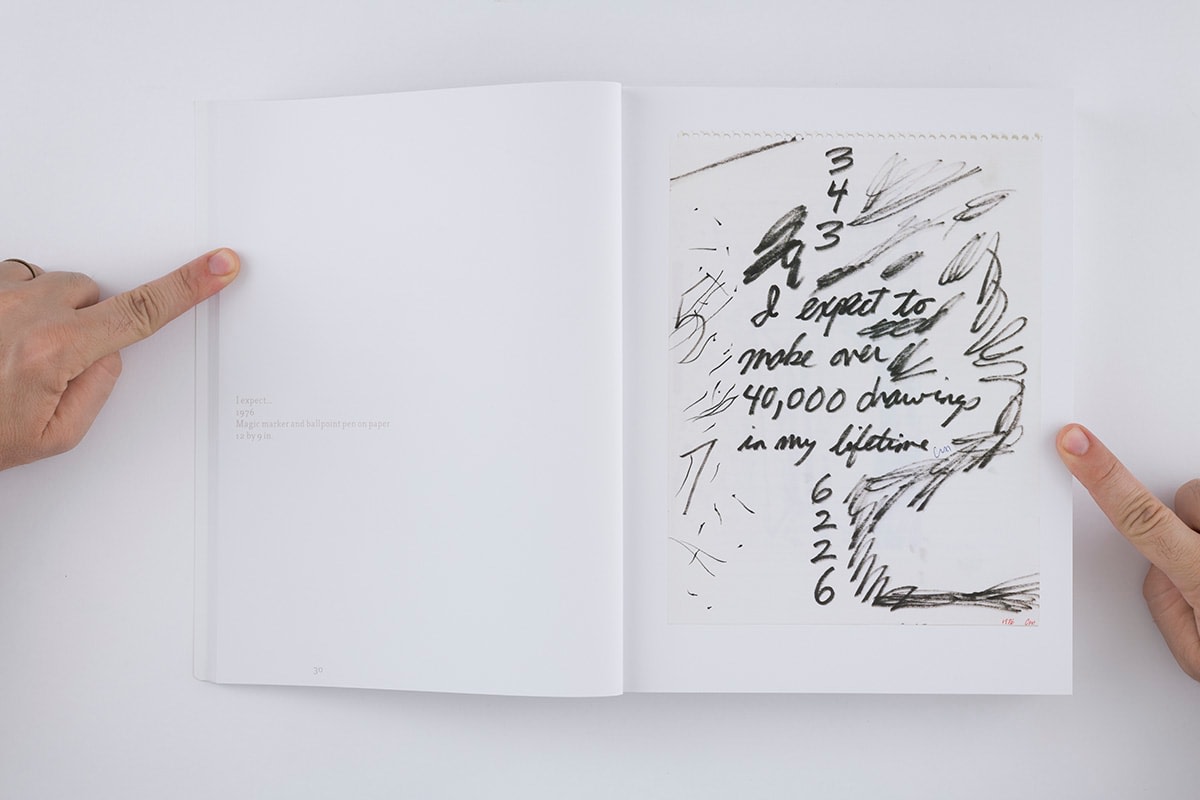 I expect...
1976
Magic marker and ballpoint pen on paper
12 by 9 in.
30
3
4
3
9
I expect to
make over
40,000 drawings
in my lifetime
6
2
2
6
1976